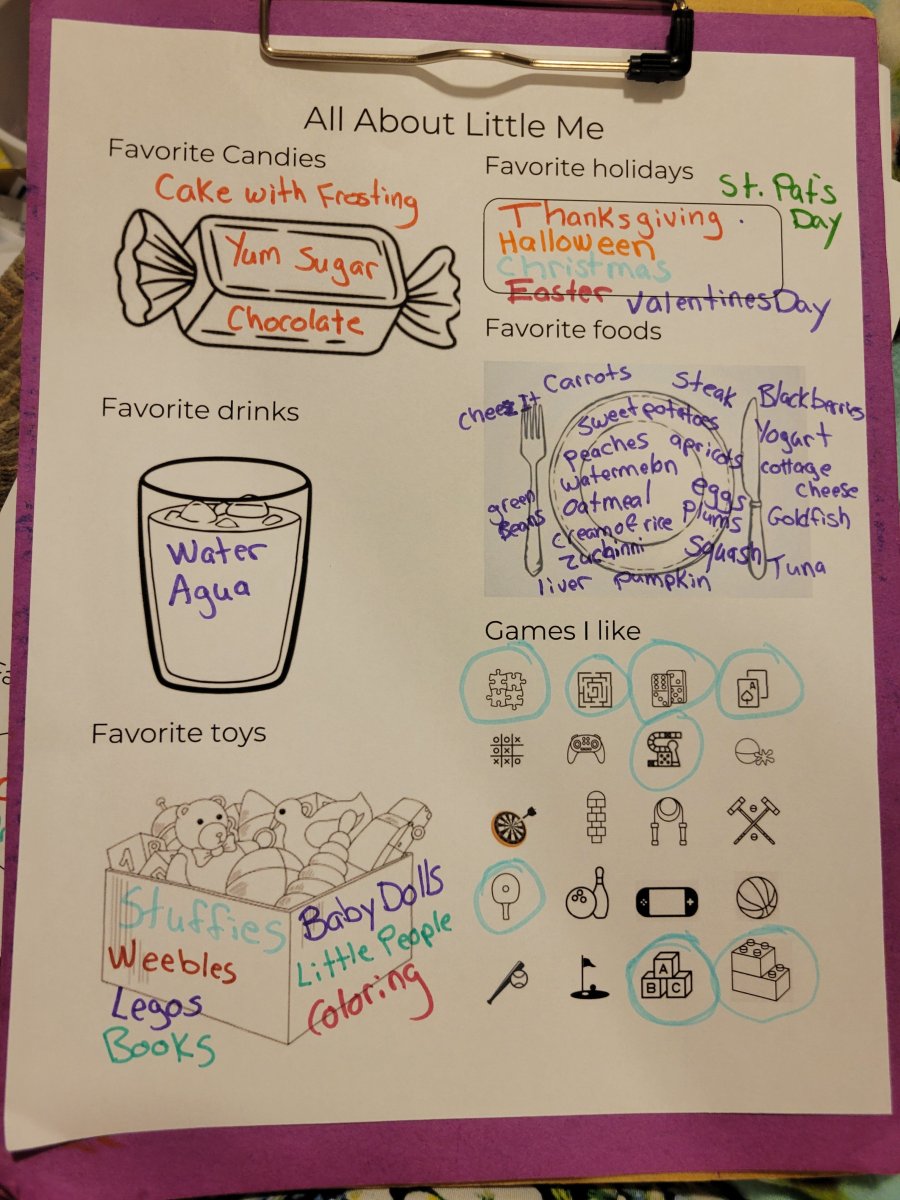 All About Little Me
Favorite Candies
Cake with Frosting
Yum Sugar
Chocolate
Favorite holidays
St. Pat's
Day
Thanksgiving
Halloween
Christmas
Easter
Valentines Day
Favorite drinks
Water
Agua
Favorite foods
Carrots
Steak
Blackberries
cheezIt
Sweet potatoes
Yogurt
Peaches
apricots
cottage
cheese
watermelon
eggs
green
Beans
Oatmeal
plums
Goldfish
cream of rice
Zuchinni
Squash
Tuna
liver
pumpkin
Games I like
A
A
B C
Favorite toys
A B
Stuffies
Baby Dolls
Weebles
Little People
Legos
Coloring
Books